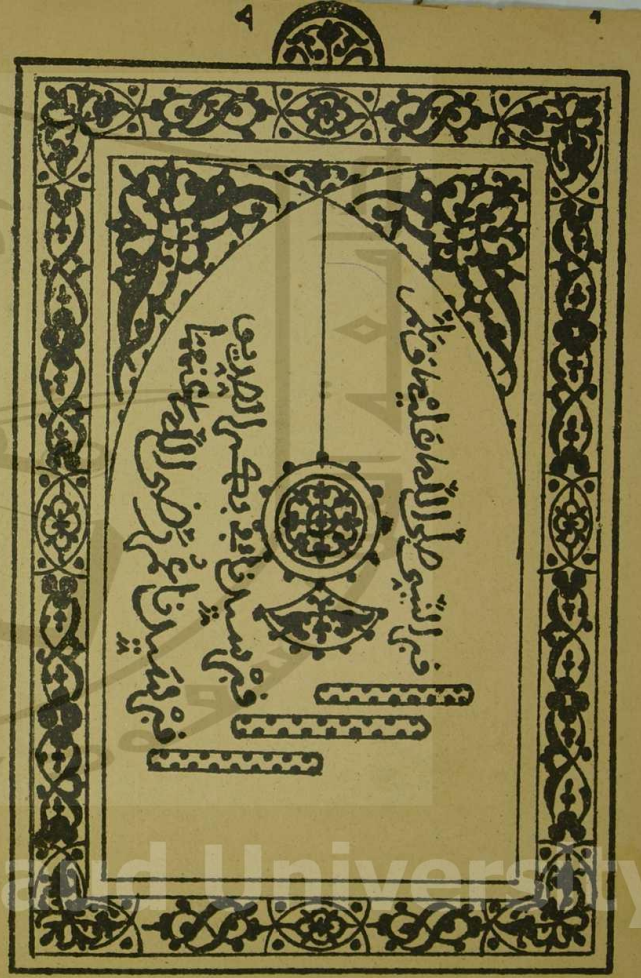 قبر النبي صلى الله عليه
قبر سيدنا ابي بكر الصديق
قبر سيدنا عمر رضي الله عنهما
aud University